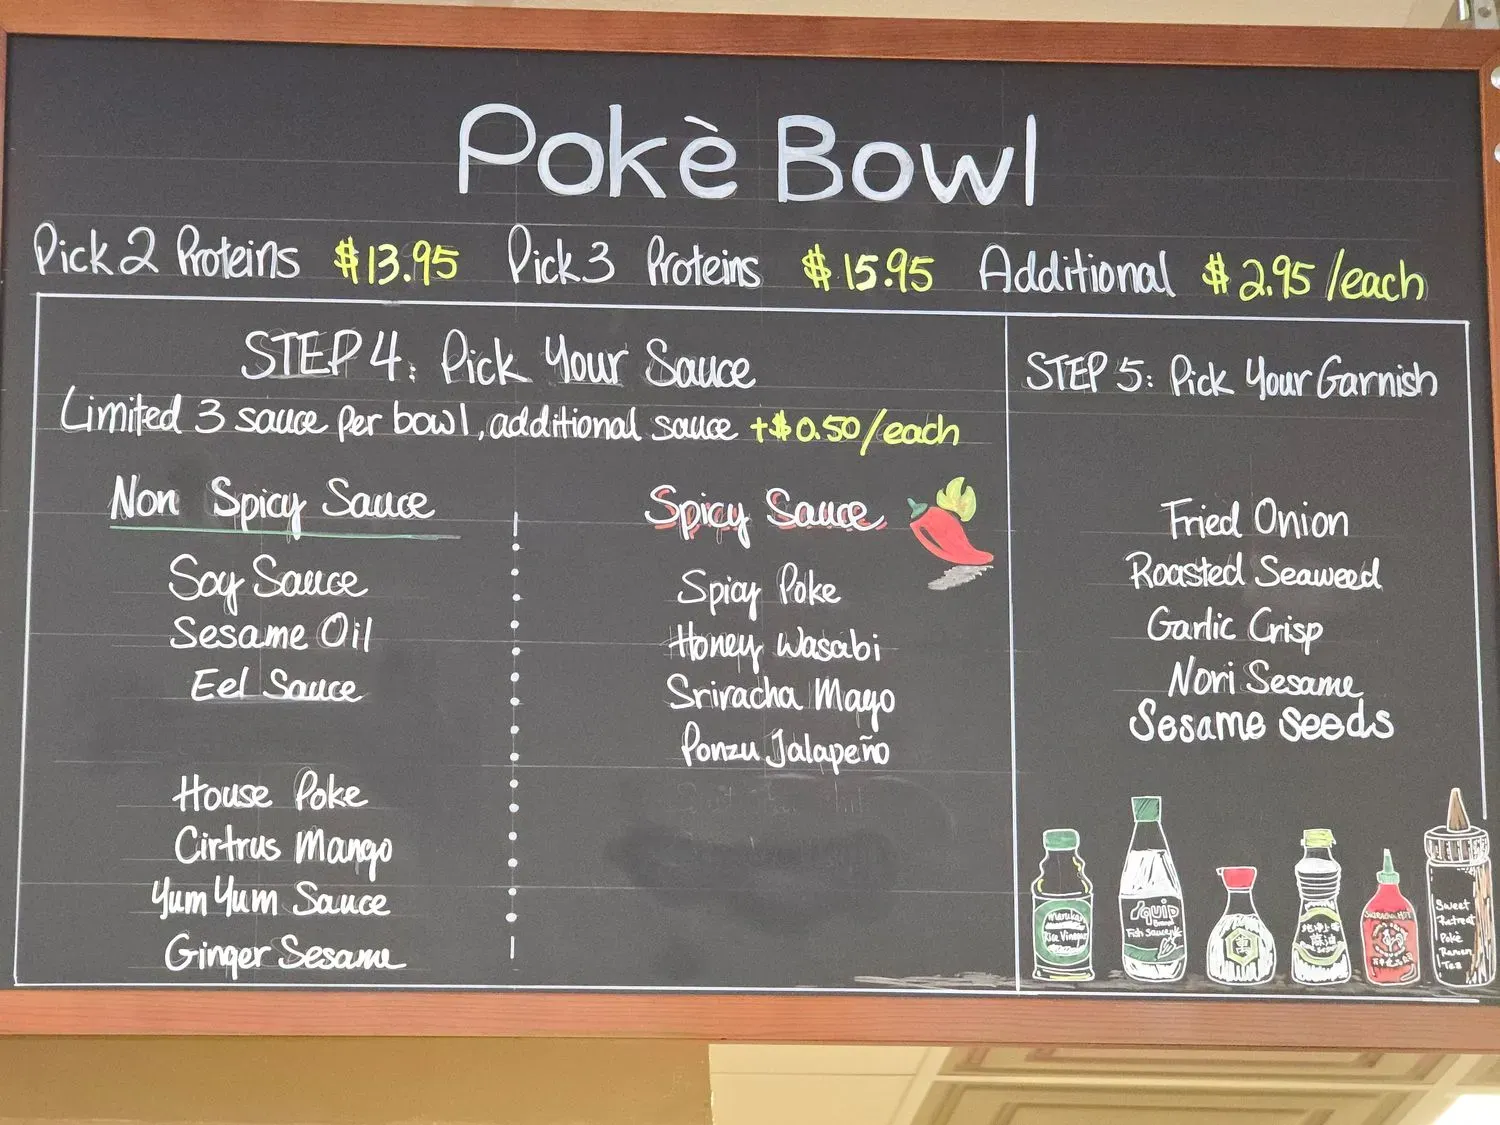 Pokè Bowl
Pick 2 Proteins $13.95 Pick 3 Proteins $15.95 Additional $2.95/each
STEP 4: Pick Your Sauce
Limited 3 sauce per bowl, additional sauce +$0.50/each
Non Spicy Sauce
Soy Sauce
Sesame Oil
Eel Sauce
House Poke
Cirtrus Mango
Yum Yum Sauce
Ginger Sesame
Spicy Sauce
Spicy Poke
Honey Wasabi
Sriracha Mago
Ponzu Jalapeño
STEP 5: Pick Your Garnish
Fried Onion
Roasted Seaweed
Garlic Crisp
Nori Sesame
Sesame seeds
Marukan
Rice Vinegar
Squid
Brand
Fish Sauce
SRIRACHA HOT
Sweet
Retreat
Pokè
Ramen
Tea